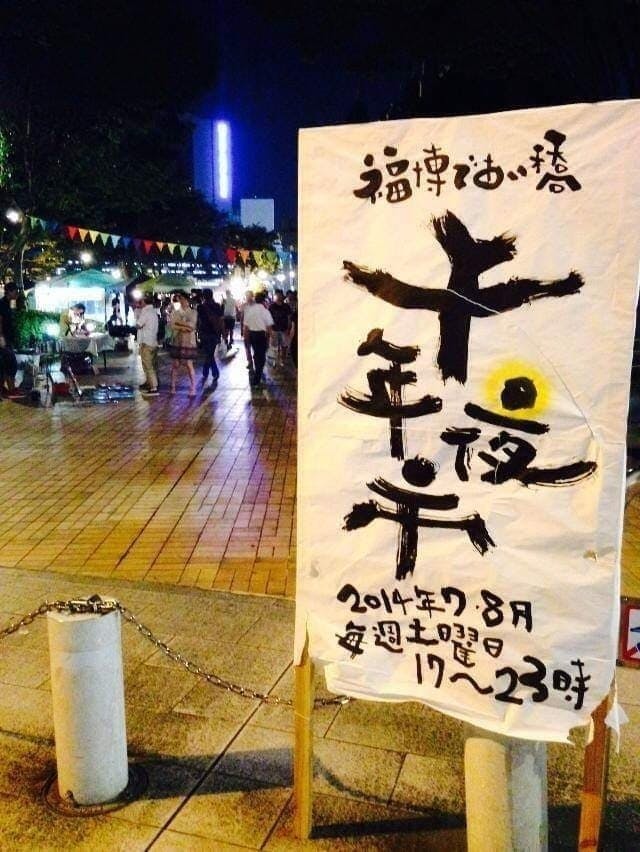 福博であい橋
千年夜市
2014年7・8月
毎週土曜日
17〜23時